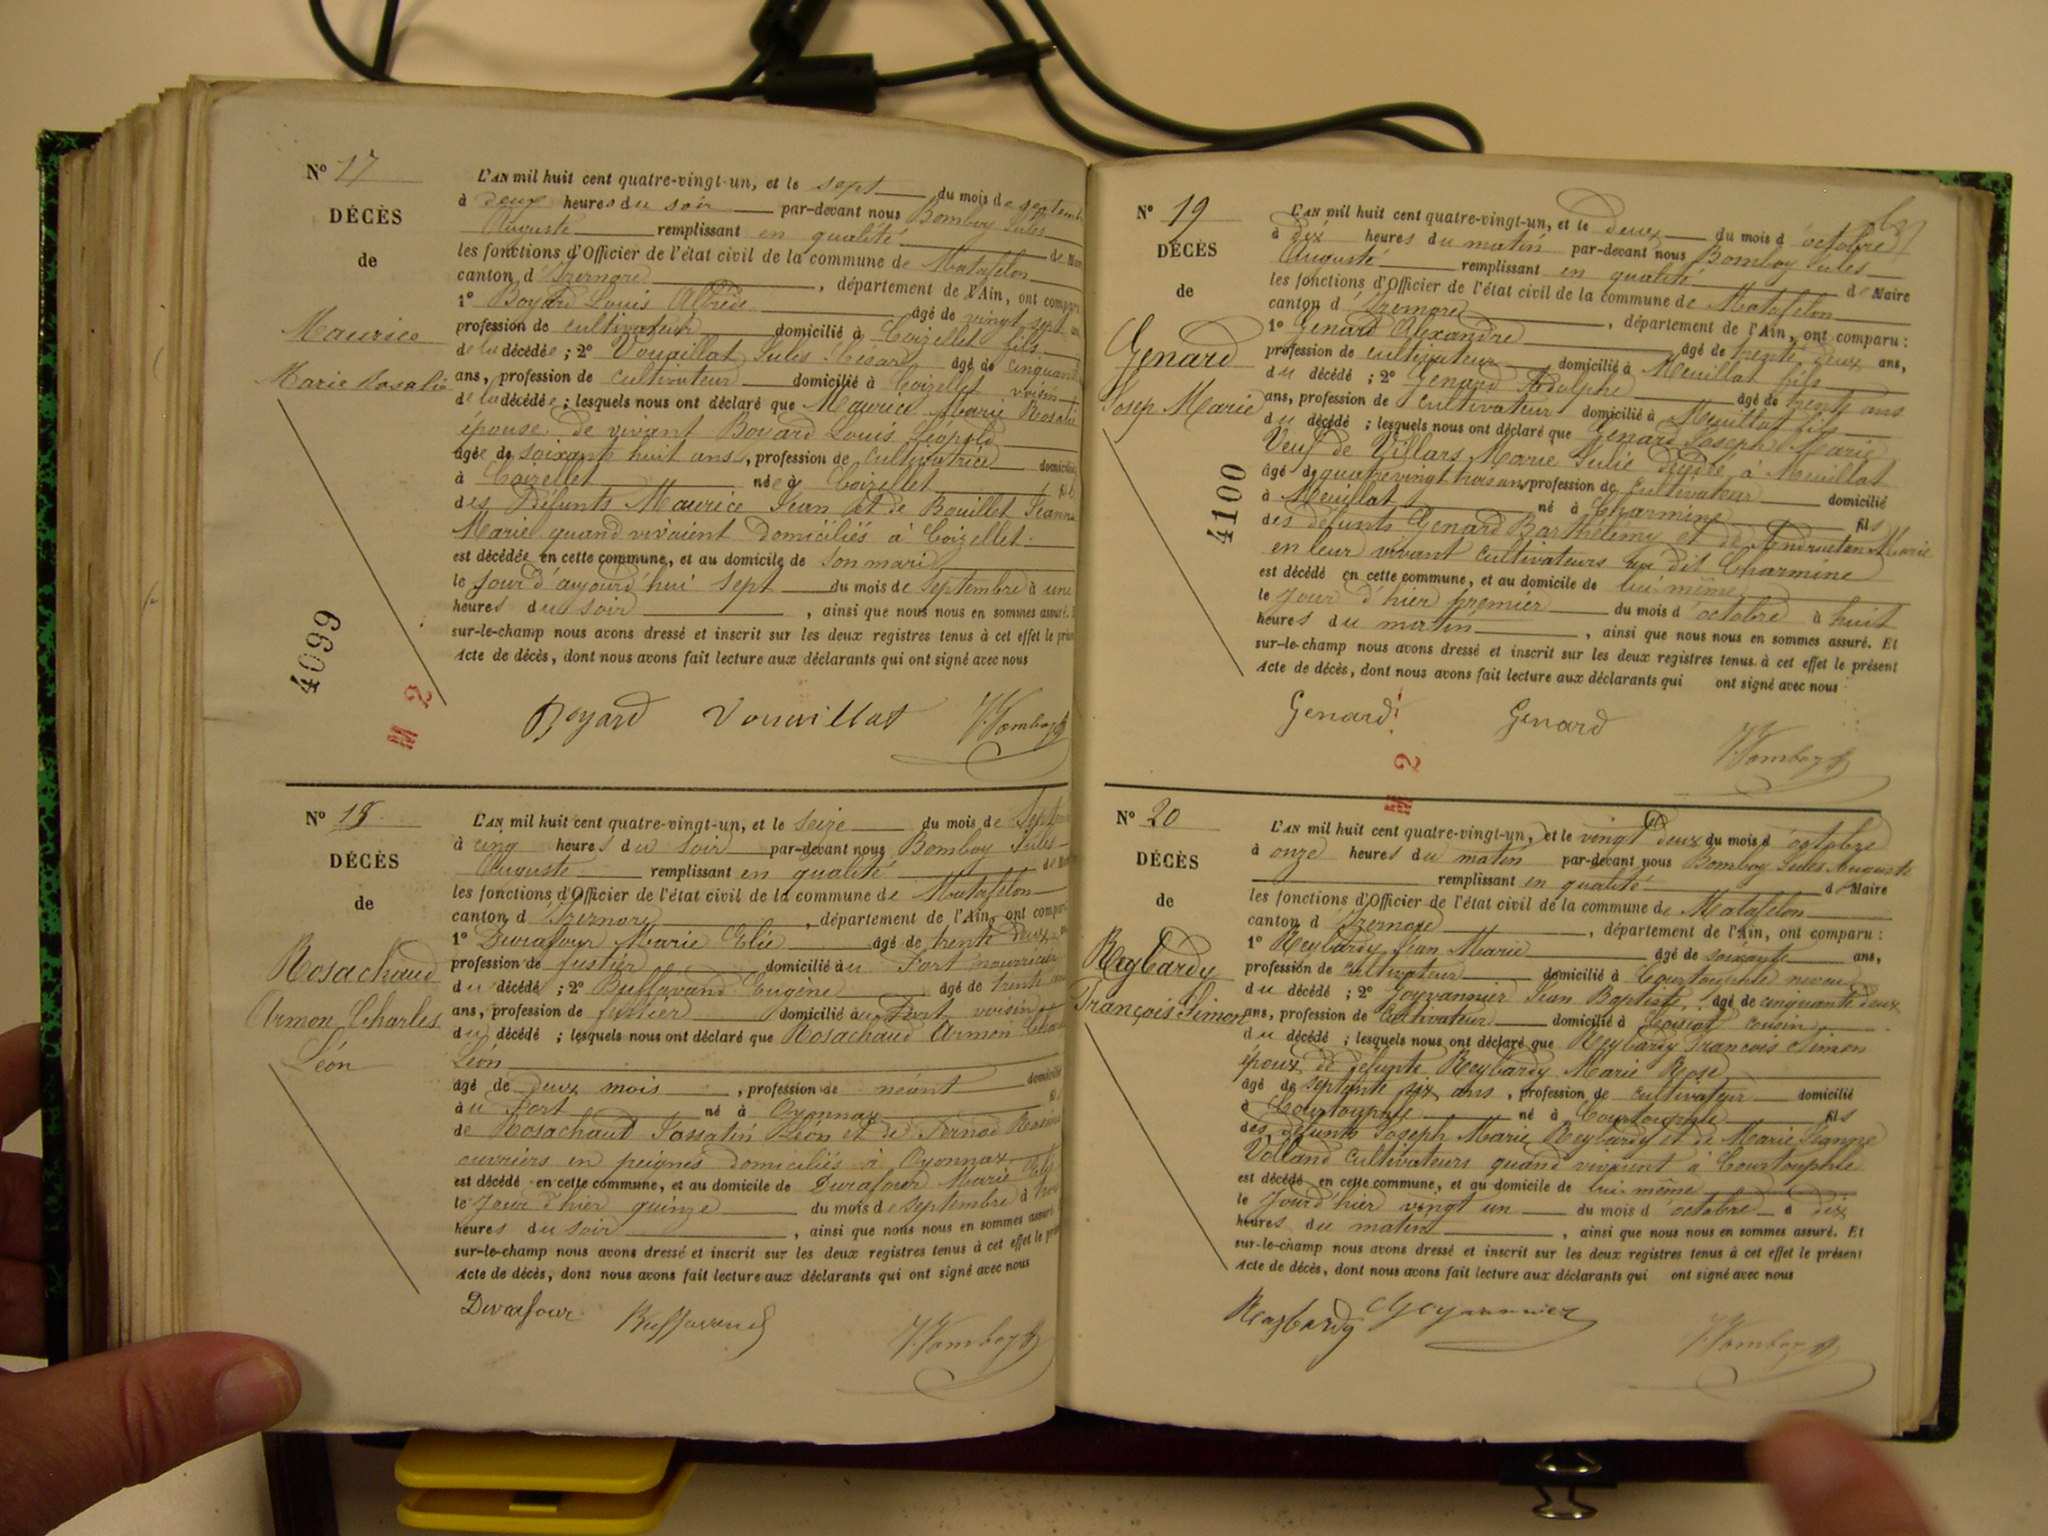 N° 17
DÉCÈS
de
Maurice
Marie Rosalie
L'AN mil huit cent quatre-vingt-un, et le sept du mois de septemb
à deux heures du soir par-devant nous Bomboy Jules
Auguste remplissant en qualité de
les fonctions d'Officier de l'état civil de la commune de Matafelon
canton d'Izernore, département de l'Ain, ont compar
1° Boyard Louis Alfred âgé de vingt sept
profession de cultivateur domicilié à Coizellet fils
de la décédée; 2° Vouaillat Jules César âgé de cinquant
ans, profession de cultivateur domicilié à Coizellet voisin
de la décédée; lesquels nous ont déclaré que Maurice Marie Rosalie
épouse de vivant Boyard Louis Léopold
âgée de soixante huit ans, profession de cultivatrice domiciliée
à Coizellet née à Coizellet
des défunts Maurice Jean et de Bouillet Jeanne
Marie quand vivaient domiciliés à Coizellet
est décédée en cette commune, et au domicile de son mari
le jour d'aujourd'hui sept du mois de septembre à une
heures du soir, ainsi que nous nous en sommes assuré.
sur-le-champ nous avons dressé et inscrit sur les deux registres tenus à cet effet le prés
Acte de décès, dont nous avons fait lecture aux déclarants qui ont signé avec nous
Boyard Vouaillat J. Bomboy
4099
M 2
N° 18
DÉCÈS
de
Rosachaud
Armon Charles
Léon
L'AN mil huit cent quatre-vingt-un, et le seize du mois de Sept
à cinq heures du soir par-devant nous Bomboy Jules
Auguste remplissant en qualité de
les fonctions d'Officier de l'état civil de la commune de Matafelon
canton d'Izernore, département de l'Ain, ont compar
1° Durafour Marie Elie âgé de trente deux
profession de fustier domicilié au Port nourricier
du décédé; 2° Buffavand Eugène âgé de trente
ans, profession de fustier domicilié au Port voisin
du décédé; lesquels nous ont déclaré que Rosachaud Armon Charles
Léon
âgé de deux mois, profession de néant domicilié
au Port né à Oyonnax
de Rosachaud Léon et de
ouvriers en peignes domiciliés à Oyonnax
est décédé en cette commune, et au domicile de Durafour Marie Elie
le jour d'hier quinze du mois de septembre à
heures du soir, ainsi que nous nous en sommes assuré
sur-le-champ nous avons dressé et inscrit sur les deux registres tenus à cet effet le prés
Acte de décès, dont nous avons fait lecture aux déclarants qui ont signé avec nous
Durafour Buffavand J. Bomboy
N° 19
DÉCÈS
de
Genard
Josep Marie
L'AN mil huit cent quatre-vingt-un, et le deux du mois d'octobre
à dix heures du matin par-devant nous Bomboy Jules
Auguste remplissant en qualité de Maire
les fonctions d'Officier de l'état civil de la commune de Matafelon
canton d'Izernore, département de l'Ain, ont comparu:
1° Genard Alexandre âgé de trente deux ans,
profession de cultivateur domicilié à Meuillat fils
du décédé; 2° Genard Adolphe âgé de trente ans
ans, profession de cultivateur domicilié à Meuillat fils
du décédé; lesquels nous ont déclaré que Genard Joseph Marie
Veuf de Villars Marie Julie à Meuillat
âgé de quatrevingt trois ans, profession de cultivateur domicilié
à Meuillat né à Charmine fils
des défunts Genard Barthélemy et de Marie
en leur vivant cultivateurs au dit Charmine
est décédé en cette commune, et au domicile de lui même
le jour d'hier premier du mois d'octobre à huit
heures du matin, ainsi que nous nous en sommes assuré. Et
sur-le-champ nous avons dressé et inscrit sur les deux registres tenus à cet effet le présent
Acte de décès, dont nous avons fait lecture aux déclarants qui ont signé avec nous
Genard Genard J. Bomboy
4100
M 2
N° 20
DÉCÈS
de
Reybardy
François Simon
L'AN mil huit cent quatre-vingt-un, et le vingt deux du mois d'octobre
à onze heures du matin par-devant nous Bomboy Jules Auguste
remplissant en qualité de Maire
les fonctions d'Officier de l'état civil de la commune de Matafelon
canton d'Izernore, département de l'Ain, ont comparu:
1° Reybardy Jean Marie âgé de soixante ans,
profession de cultivateur domicilié à Courtouphle neveu
du décédé; 2° Goyvannier Jean Baptiste âgé de cinquante deux
ans, profession de cultivateur domicilié à cousin
du décédé; lesquels nous ont déclaré que Reybardy François Simon
époux de défunte Reybardy Marie Rose
âgé de septante six ans, profession de cultivateur domicilié
à Courtouphle né à Courtouphle fils
des défunts Joseph Marie Reybardy et de Marie Jeanne
Volland cultivateurs quand vivaient à Courtouphle
est décédé en cette commune, et au domicile de lui-même
le jour d'hier vingt un du mois d'octobre à dix
heures du matin, ainsi que nous nous en sommes assuré. Et
sur-le-champ nous avons dressé et inscrit sur les deux registres tenus à cet effet le présent
Acte de décès, dont nous avons fait lecture aux déclarants qui ont signé avec nous
Reybardy Goyvannier J. Bomboy